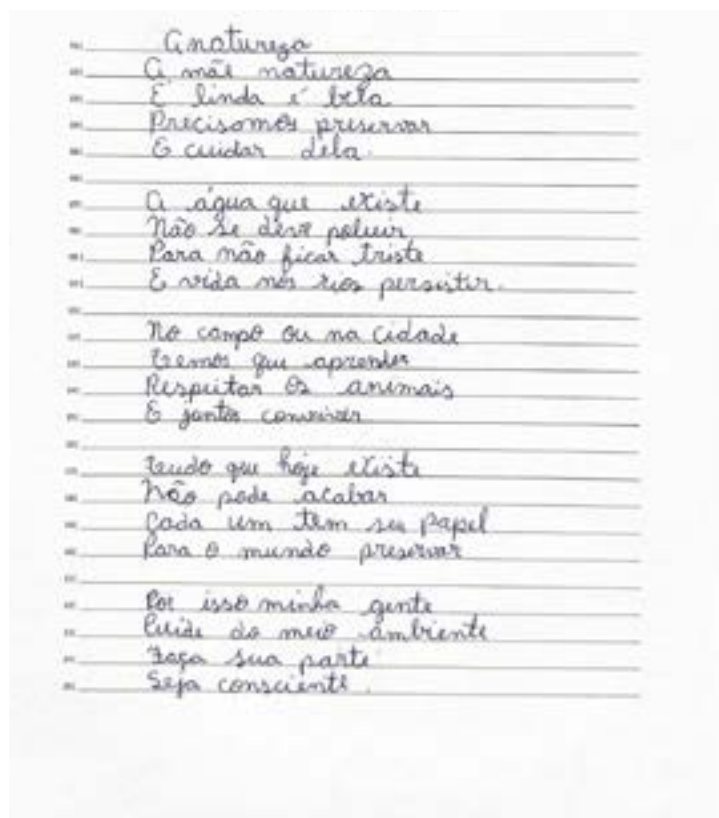 A natureza
A mãe natureza
É linda é bela
Precisamos preservar
E cuidar dela.
A água que existe
Não se deve poluir
Para não ficar triste
E vida nos rios persistir.
No campo ou na cidade
Temos que aprender
Respeitar os animais
E juntos conviver
Tudo que hoje existe
Não pode acabar
Cada um tem seu papel
Para o mundo preservar
Por isso minha gente
Cuide do meio ambiente
Faça sua parte
Seja consciente.